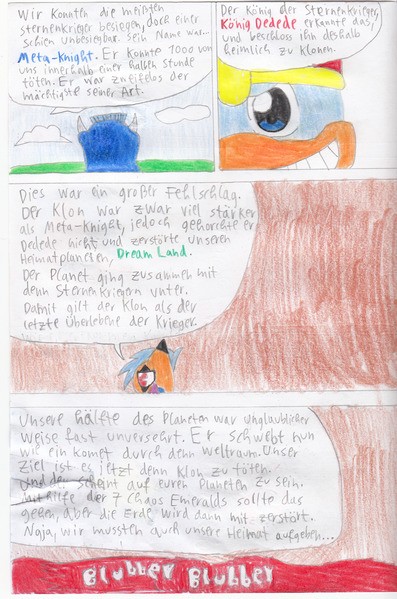 Wir konnten die meisten
sternenkrieger besiegen, doch einer
schien unbesiegbar. sein Name war...
Meta-Knight. Er konnte 1000 von
uns innerhalb einer halben Stunde
töten. Er war zweifelos der
mächtigste seiner Art.
Der König der Sternenkrieger,
König Dedede erkannte das,
und beschloss ihn deshalb
heimlich zu klonen.
Dies war ein großer Fehlschlag.
Der Klon war zwar viel stärker
als Meta-Knight, jedoch gehorchte er
Dedede nicht und zerstörte unseren
Heimatplaneten, Dream Land.
Der Planet ging zusammen mit
denn Sternenkriegern unter.
Damit gilt der Klon als der
letzte Überlebene der Krieger.
Unsere hälfte des Planeten war unglaublicher
weise fast unversehrt. Er schwebt nun
wie ein Komet durch denn Weltraum. Unser
Ziel ist es jetzt denn Klon zu töten.
Und der scheint auf euren Planeten zu sein.
mithilfe der 7 Chaos Emeralds sollte das
gehen, aber die Erde wird dann mit zerstört.
Naja, wir mussten auch unsere Heimat aufgeben...
Blubber Blubber